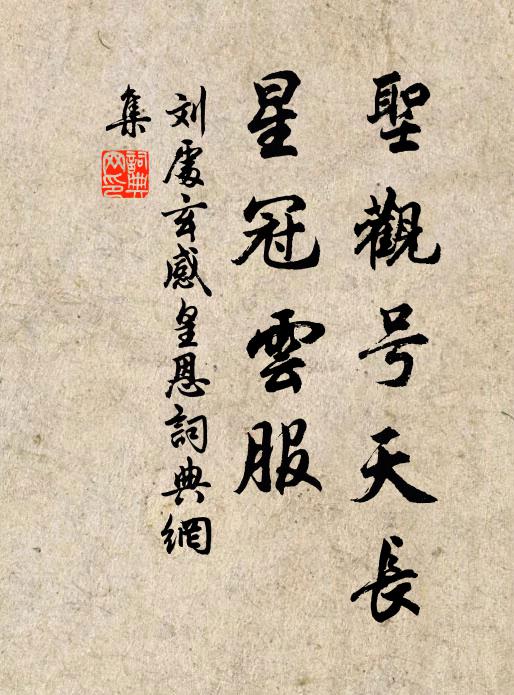 聖觀号天長
星冠雲服
刘處玄感皇恩詞典網
集
詞典
网印